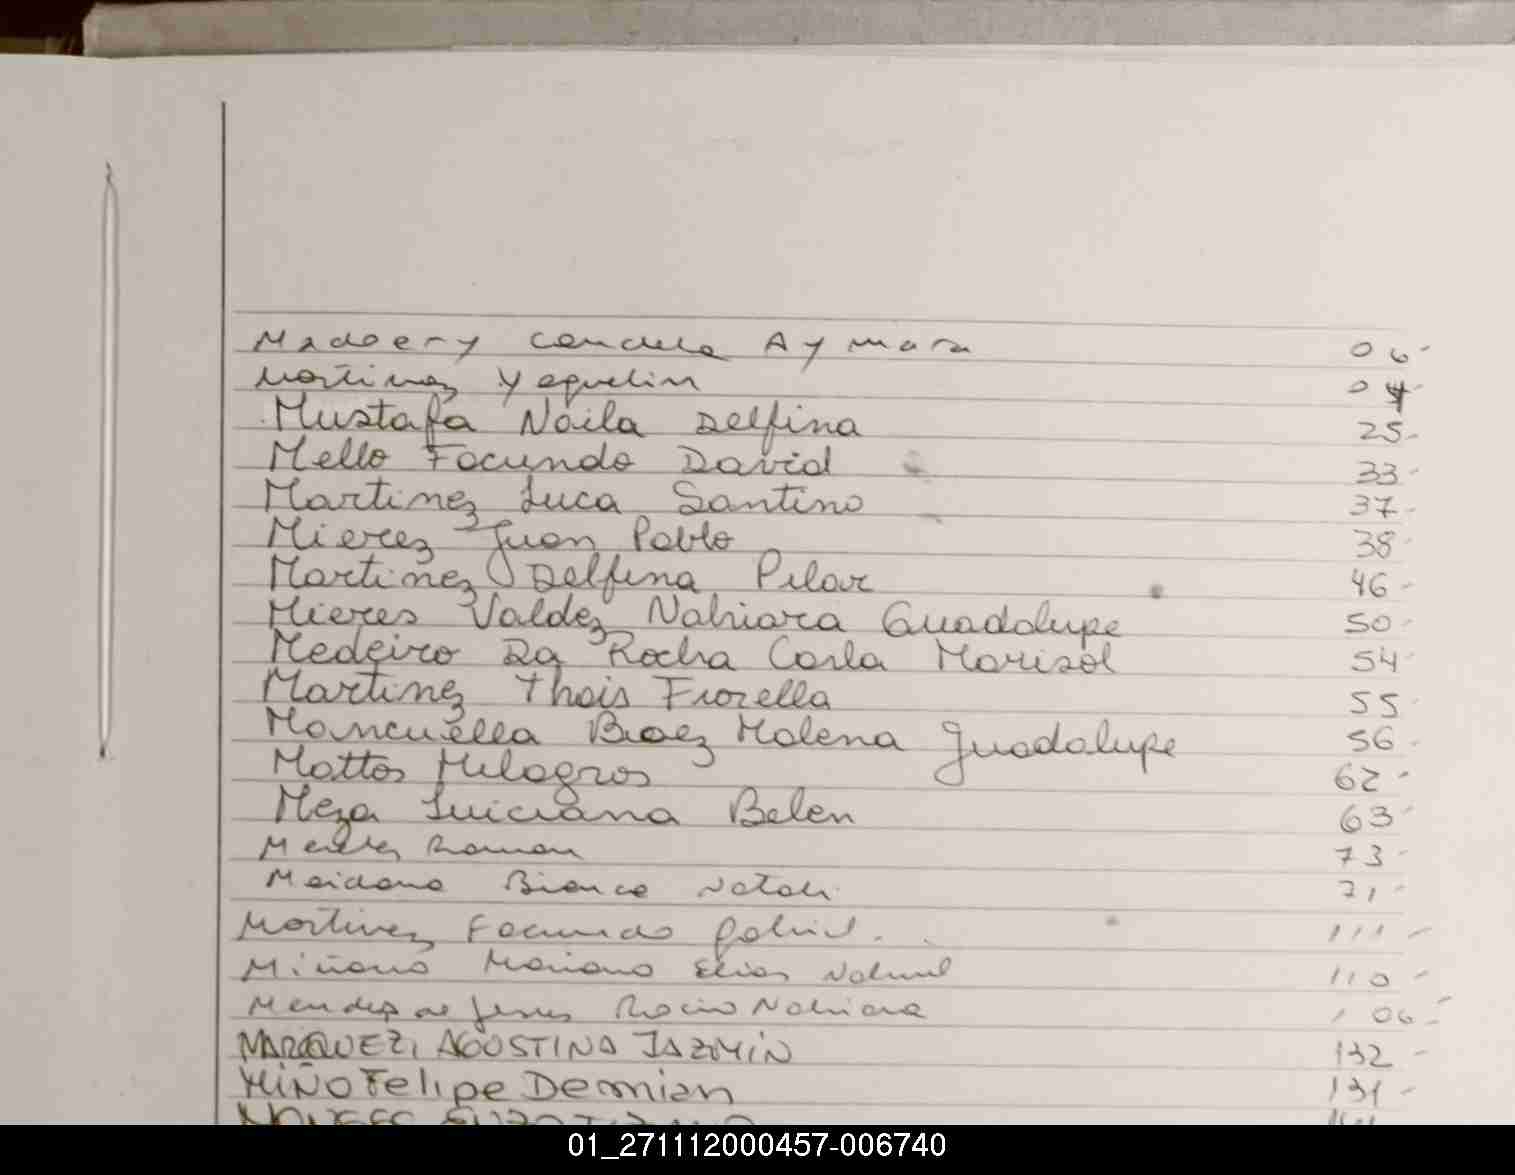 Madoery Candela Aymara 06-
Martinez Yaquelin 04
Mustafa Naila Delfina 25-
Mello Facundo David 33-
Martinez Luca Santino 37-
Mierez Juan Pablo 38-
Martinez Delfina Pilar 46-
Mieres Valdez Nahiara Guadalupe 50-
Medeiro Da Rocha Carla Marisol 54-
Martinez Thais Fiorella 55-
Mancuella Baez Malena Guadalupe 56-
Mattos Milagros 62-
Meza Luiciana Belen 63-
Ramon 73-
Maidana Bianca Natali 71-
Martinez Facundo Gabriel. 111-
Miñano Mariano Elias Nahuel 110-
Mendez de Jesus Rocio Nahiara 106-
MARQUEZ, AGOSTINA JAZMÍN 132-
MIÑO Felipe Demian 131-
01_271112000457-006740